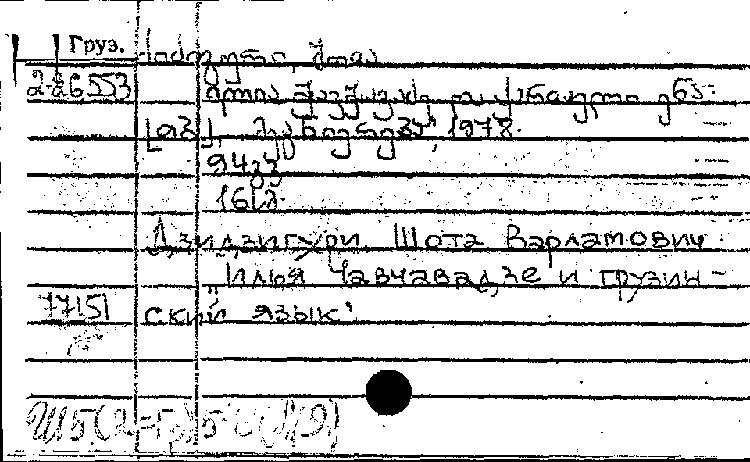 Груз.
ძიძიგური, შოთა
2-26553
ილია ჭავჭავაძე და ქართული ენა.
[თბ.], "მეცნიერება", 1978.
94 გვ
16 სმ.
Дзидзигури Шота Варламович
"Илья Чавчавадзе и грузин-
77151 ский язык".